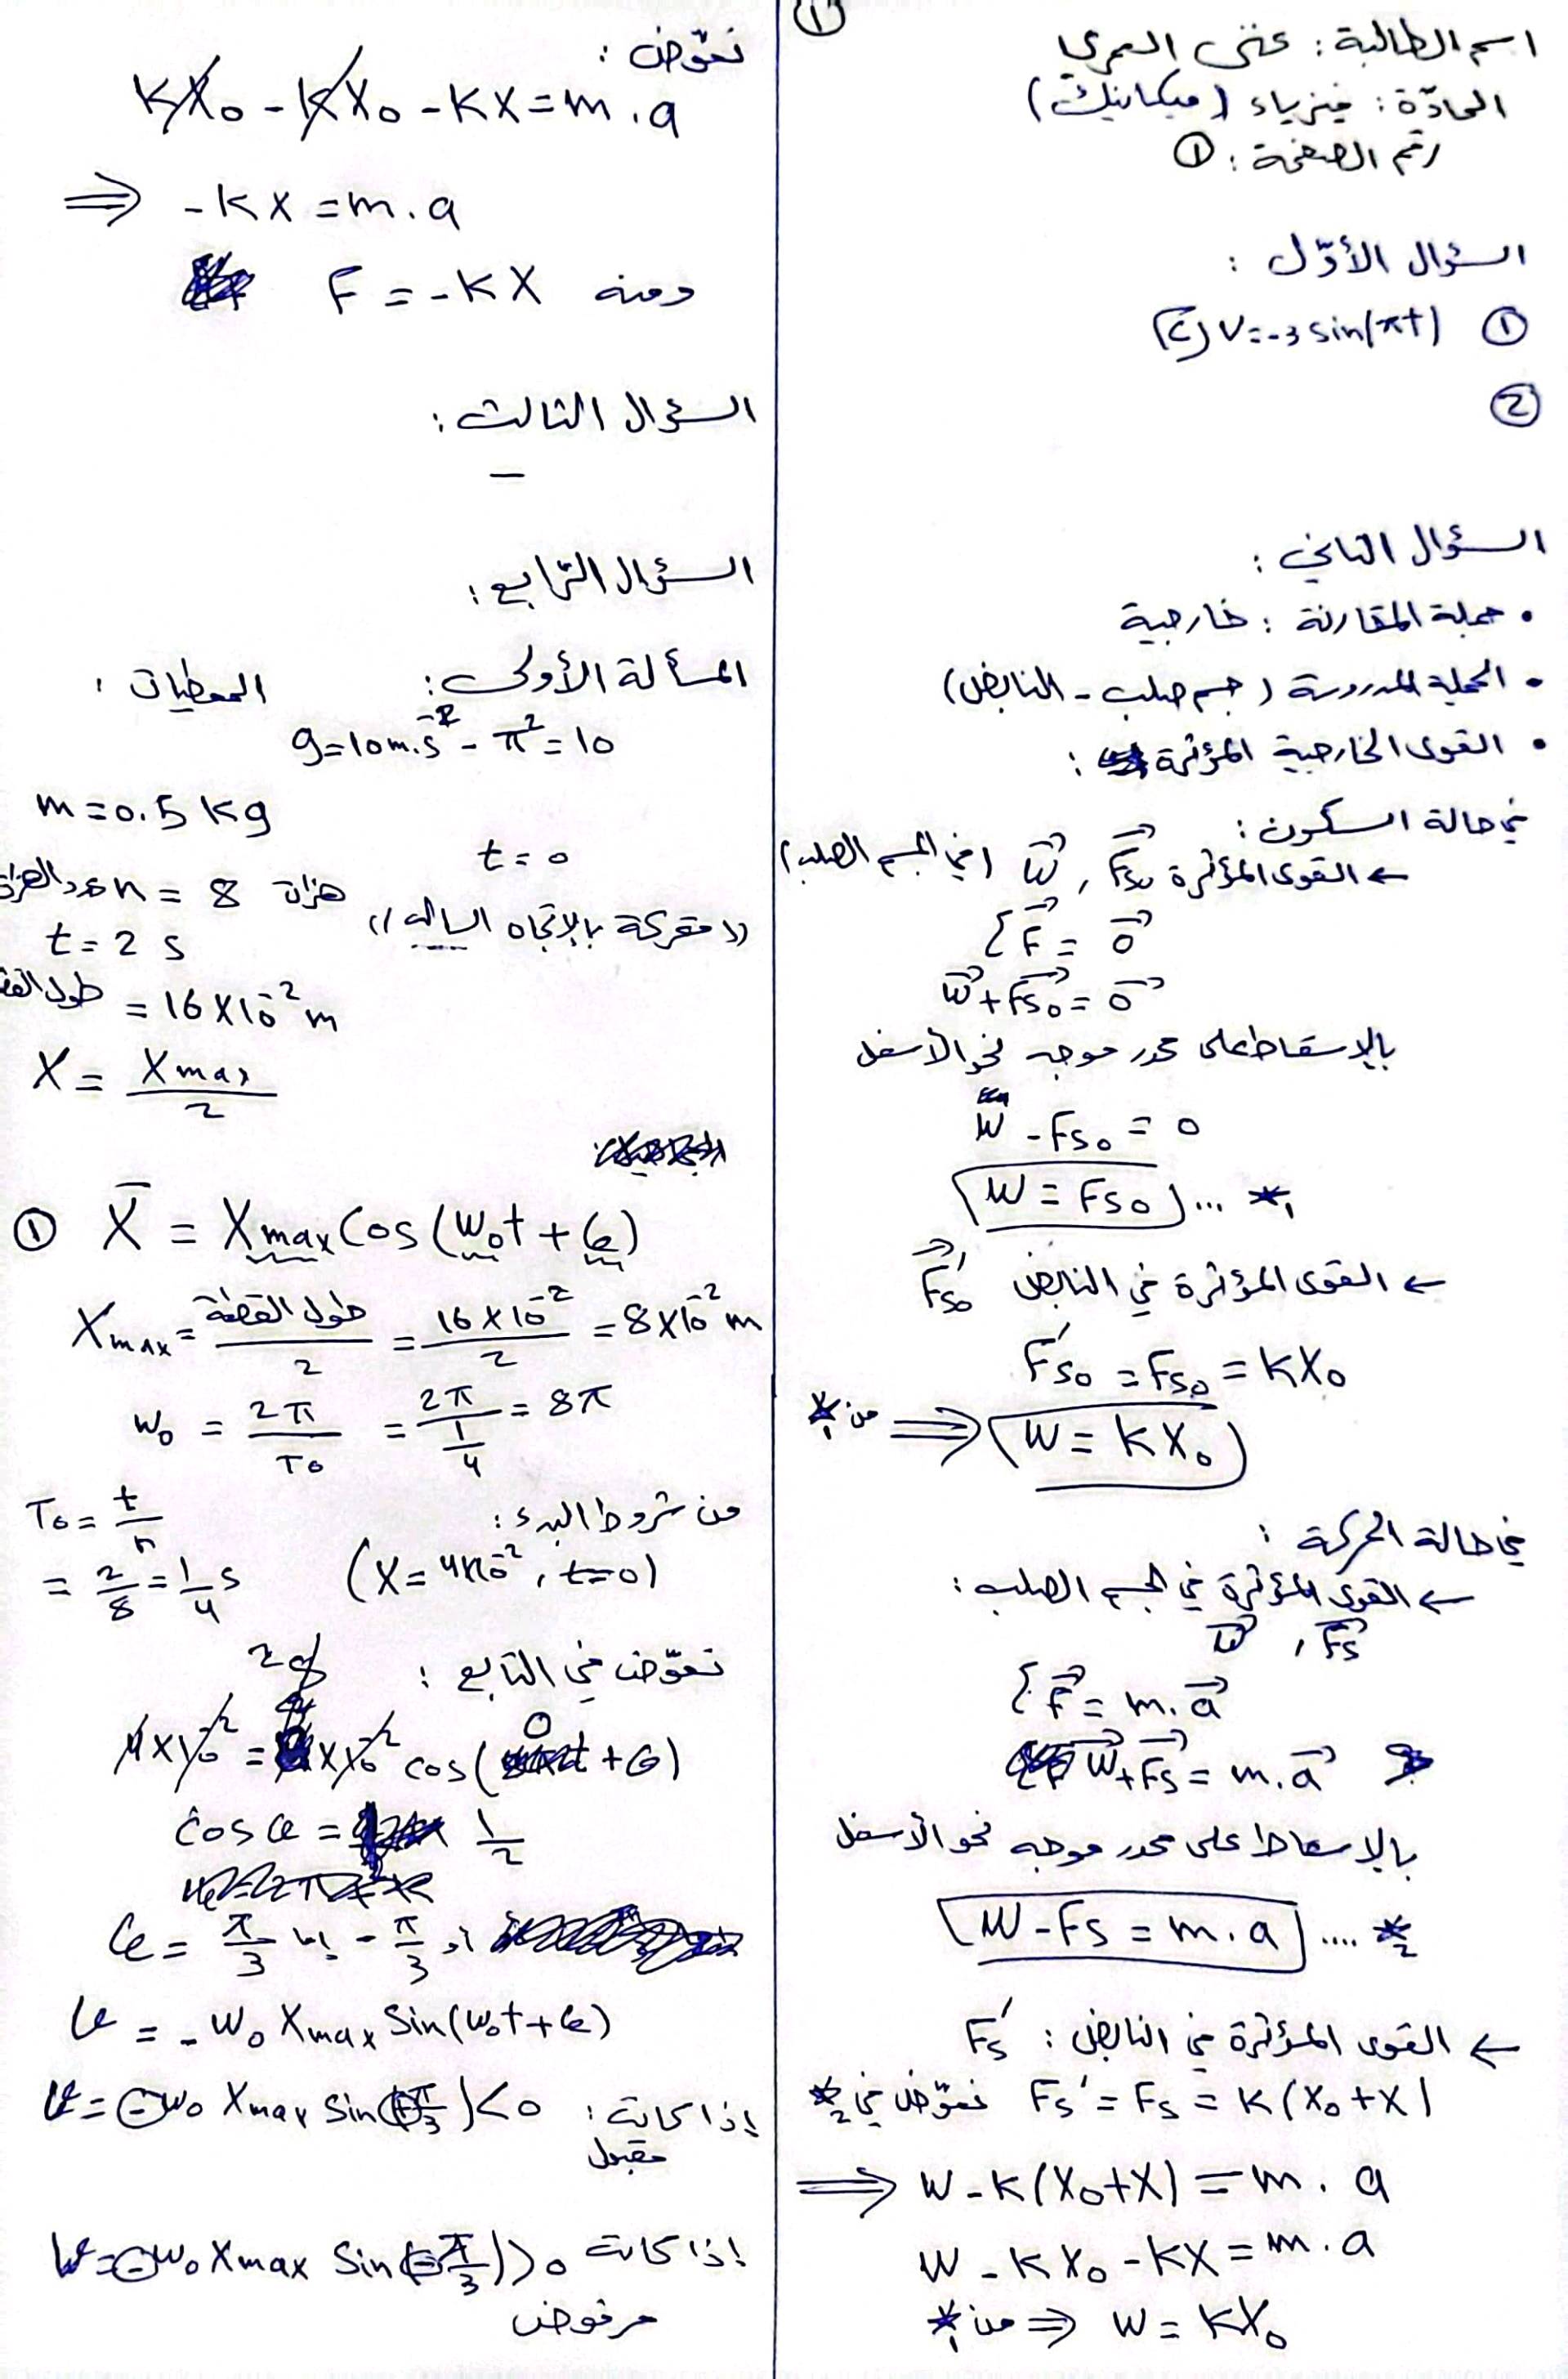 ①
اسم الطالبة: غنى العمري
المادّة: فيزياء (ميكانيك)
رقم الصفحة: ①
السؤال الأوّل:
① C) v=-3 sin(πt)
②
السؤال الثاني:
• جملة المقارنة: خارجية
• الجملة المدروسة (جسم صلب - النابض)
• القوى الخارجية المؤثرة:
في حالة السكون:
← القوى المؤثرة W⃗, F⃗s₀ (في الجسم الصلب)
Σ F⃗ = 0⃗
W⃗ + F⃗s₀ = 0⃗
بالإسقاط على محور موجه نحو الأسفل
W - Fs₀ = 0
W = Fs₀ ... *₁
← القوى المؤثرة في النابض F⃗'s₀
F's₀ = Fs₀ = kx₀
من *₁ ⟹ W = kx₀
في حالة الحركة:
← القوى المؤثرة في الجسم الصلب:
W⃗, F⃗s
Σ F⃗ = m.a⃗
W⃗ + F⃗s = m.a⃗
بالإسقاط على محور موجه نحو الأسفل
W - Fs = m.a .... *₂
← القوى المؤثرة في النابض: Fs'
Fs' = Fs = k(x₀+x) نعوّض في *₂
⟹ W - k(x₀+x) = m.a
W - kx₀ - kx = m.a
من *₁ ⟹ W = kx₀
نعوّض:
kx₀ - kx₀ - kx = m.a
⟹ -kx = m.a
ومنه F = -kx
السؤال الثالث:
–
السؤال الرابع:
المسألة الأولى: المعطيات:
g=10m.s⁻² - π²=10
m=0.5 kg
t=0
عدد الهزات n = 8 هزات
((متحركة بالإتجاه السالب))
t=2 s
= 16×10⁻² m
x = Xmax/2
① x̄ = Xmax cos(ω₀t + φ)
Xmax = طول القطعة/2 = 16×10⁻²/2 = 8×10⁻² m
ω₀ = 2π/T₀ = 2π/(1/4) = 8π
من شروط البدء:
T₀ = t/n
= 2/8 = 1/4 s
(x=4×10⁻², t=0)
نعوّض في التابع:
4×10⁻² = 8×10⁻² cos(0+φ)
cos φ = 1/2
φ = π/3 إما - π/3 أو
v = -ω₀ Xmax sin(ω₀t+φ)
إذا كانت: v = -ω₀ Xmax sin(+π/3) < 0
مقبول
إذا كانت v = -ω₀ Xmax sin(-π/3) > 0
مرفوض